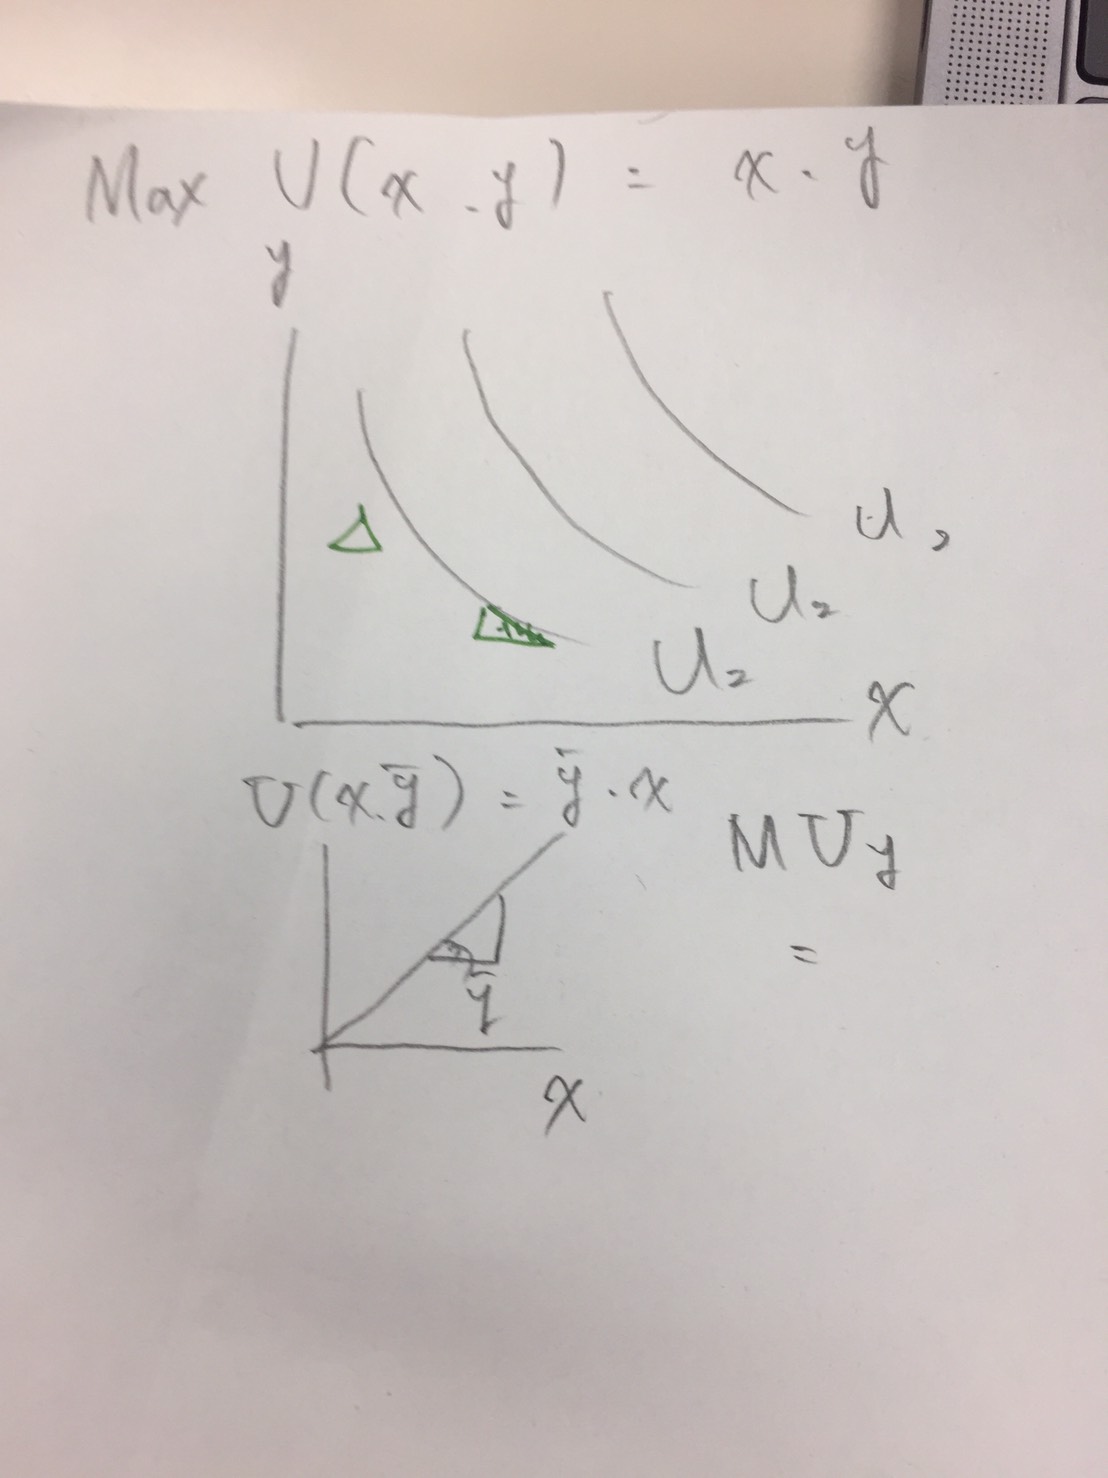 Max U(x.y) = x.y
y
U₂
U₂
U₂
x
U(x.ȳ) = ȳ.x
MUy
=
ȳ
x